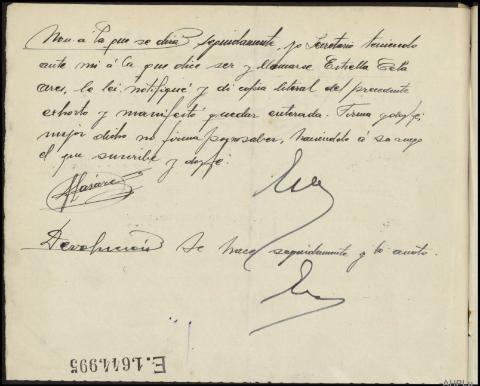 Non. á la que se dirá, seguidamente, yo Secretario teniendo
ante mi á la que dice ser y llamarse Estrella Cela
Ares, le leí notifiqué y di copia literal del precedente
exhorto y manifestó quedar enterada. Firma y doy fé
mejor dicho no firma por no saber, haciéndolo á su ruego
el que suscribe y doy fé:
Devolución Se hace seguidamente y lo anoto.
E.1.644.995
AHPLu